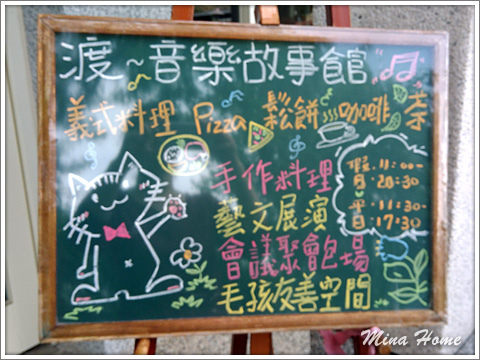 渡~音樂故事館
義式料理 Pizza 鬆餅 咖啡 茶
手作料理
藝文展演
會議聚會包場
毛孩友善空間
假 11:00-
日: 20:30
平 11:30-
日: 17:30
Mina Home